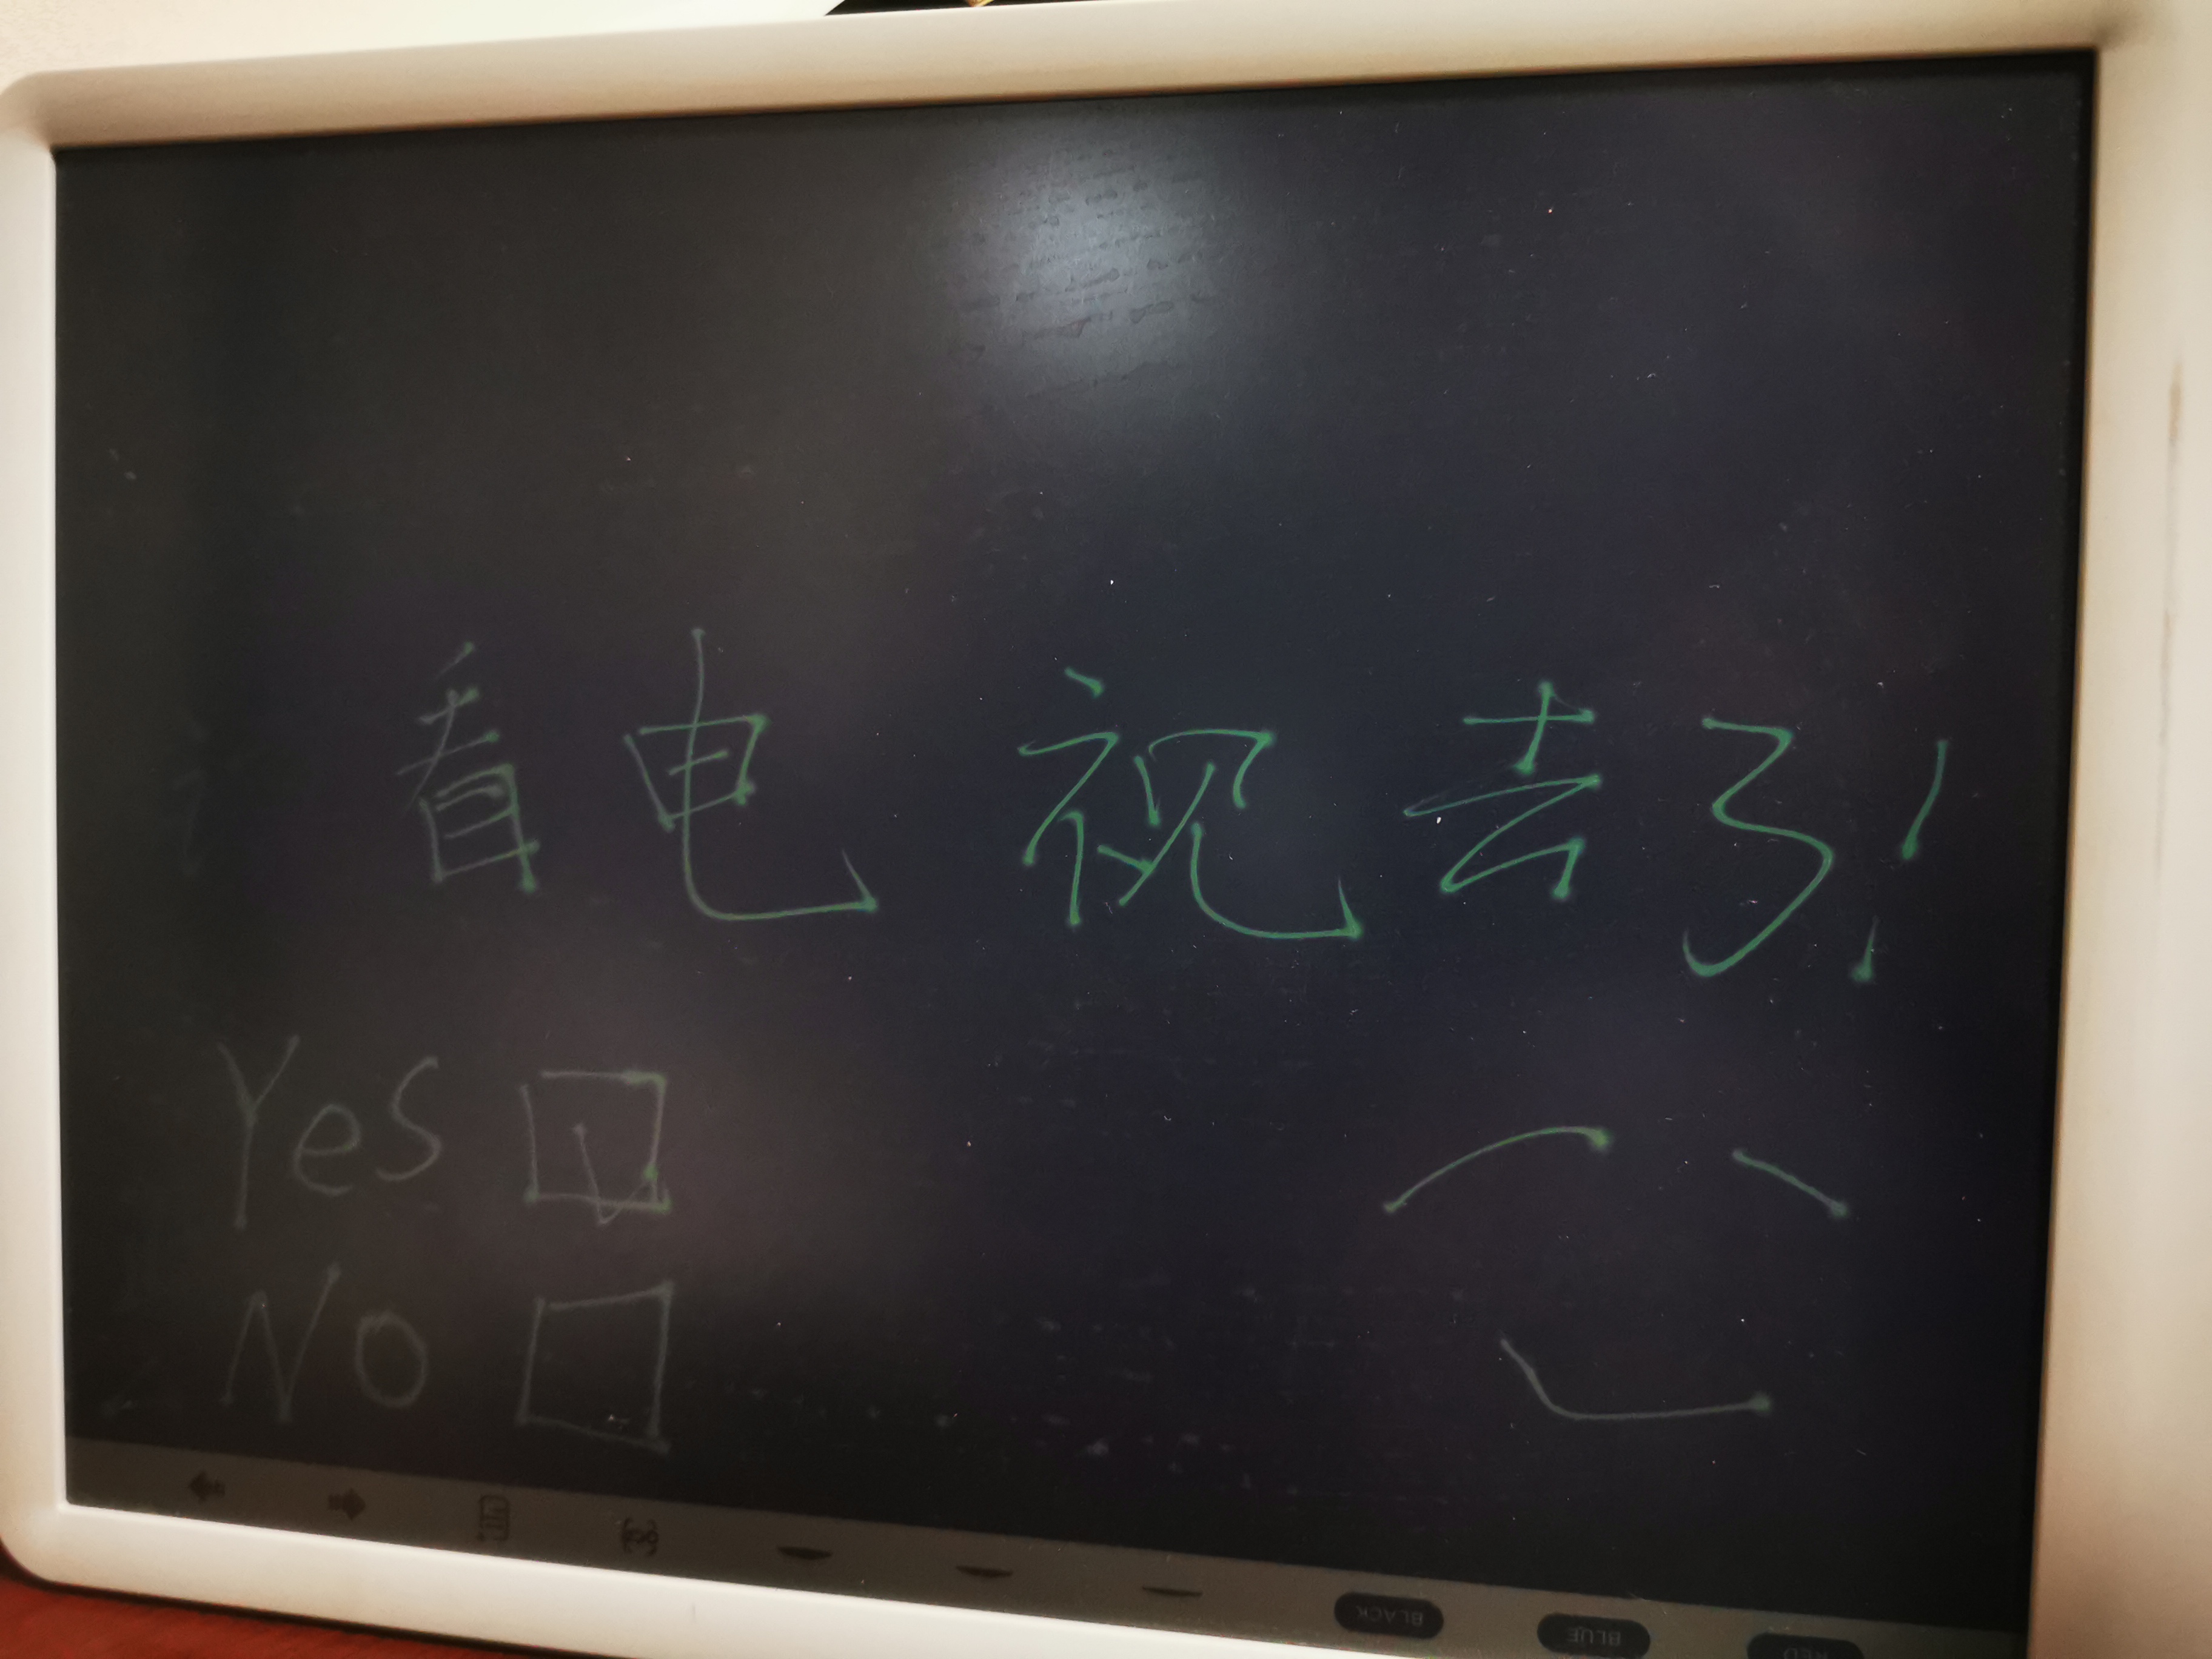 看电视去了!
Yes ☑
No □
BLACK BLUE RED